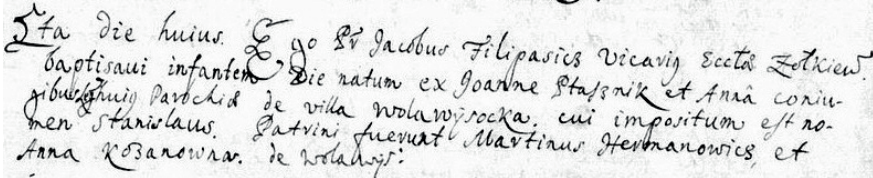 Eta die huius. Ego Pr Jacobus Filipasicz Vicarig Eccta Zołkiew.
baptisaui infantem Die natum ex Joanne Ptasznik et Anna coniu-
gibus huig Parochia de villa Wolawÿsocka. cui impositum est no-
men Stanislaus. Patrini fuerunt Martinus Hermanowicz, et
Anna Kozanowna. de Wolawys: